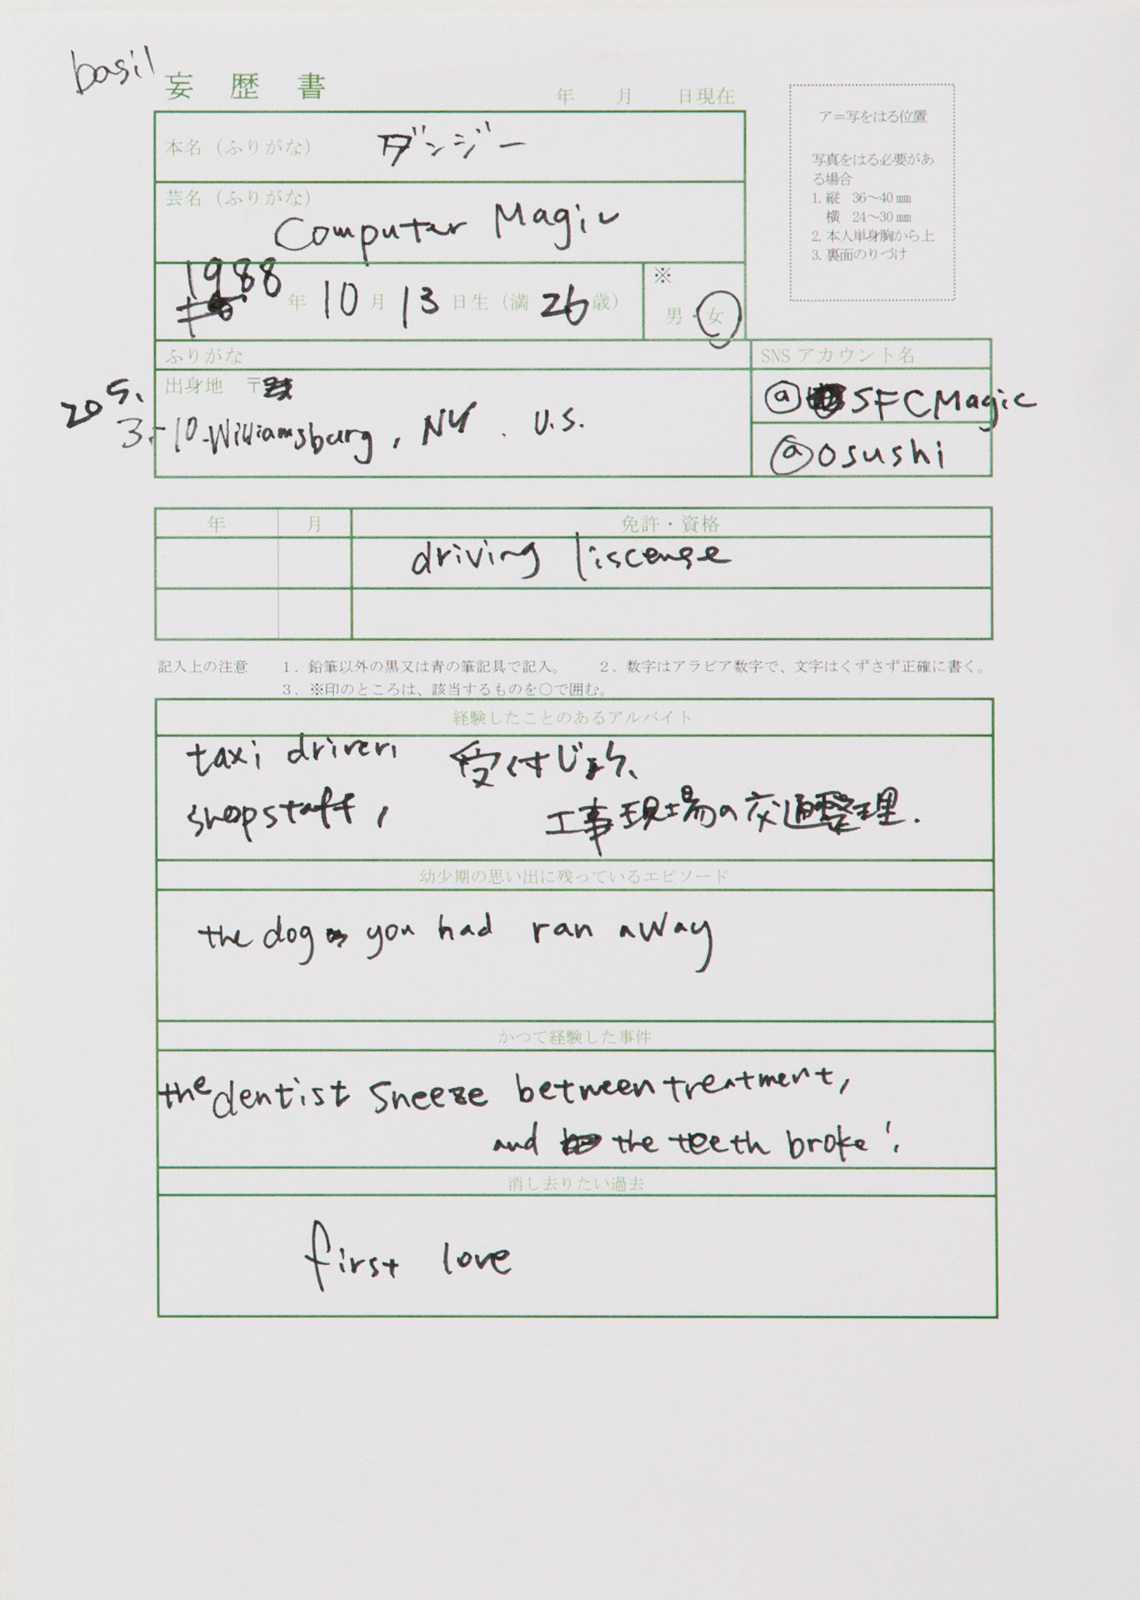 basil
妄歴書
年 月 日現在
本名（ふりがな） ダンジー
芸名（ふりがな）
Computer Magic
1988 年 10 月 13 日生（満 26 歳）
※
男・女
ア＝写をはる位置
写真をはる必要があ
る場合
1. 縦 36～40 mm
横 24～30 mm
2. 本人単身胸から上
3. 裏面のりづけ
ふりがな
出身地 〒
205.
3-10-Williamsburg, NY. U.S.
SNS アカウント名
@SFCMagic
@osushi
年 月 免許・資格
driving liscense
記入上の注意 1．鉛筆以外の黒又は青の筆記具で記入。 2．数字はアラビア数字で、文字はくずさず正確に書く。
3．※印のところは、該当するものを〇で囲む。
経験したことのあるアルバイト
taxi driver, 受付じょう、
shop staff, 工事現場の交通整理.
幼少期の思い出に残っているエピソード
the dog you had ran away
かつて経験した事件
the dentist sneeze between treatment,
and the teeth broke!
消し去りたい過去
first love